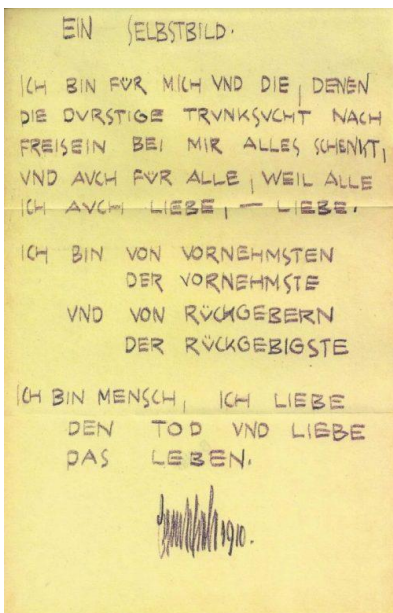 EIN SELBSTBILD.
ICH BIN FÜR MICH VND DIE, DENEN
DIE DVRSTIGE TRVNKSVCHT NACH
FREISEIN BEI MIR ALLES SCHENKT,
VND AVCH FÜR ALLE, WEIL ALLE
ICH AVCH LIEBE, — LIEBE.
ICH BIN VON VORNEHMSTEN
DER VORNEHMSTE
VND VON RÜCKGEBERN
DER RÜCKGEBIGSTE
ICH BIN MENSCH, ICH LIEBE
DEN TOD VND LIEBE
DAS LEBEN.
1910.